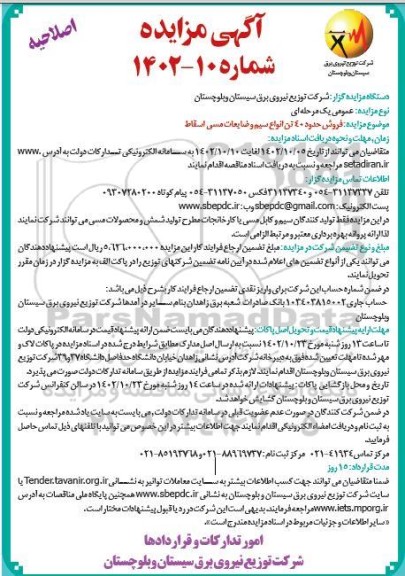 اصلاحیه
آگهی مزایده
شماره ۱۰-۱۴۰۲
شرکت توزیع نیروی برق
سیستان وبلوچستان
دستگاه مزایده گزار: شرکت توزیع نیروی برق سیستان وبلوچستان
نوع مزایده: عمومی یک مرحله ای
موضوع مزایده: فروش حدود ۴۰ تن انواع سیم و ضایعات مسی اسقاط
زمان، مهلت و نحوه دریافت اسناد مزایده:
متقاضیان می توانند از تاریخ ۱۴۰۲/۱۰/۰۵ لغایت ۱۴۰۲/۱۰/۱۰ به سامانه الکترونیکی تدارکات دولت به آدرس www.
setadiran.ir مراجعه و نسبت به دریافت اسناد مناقصه اقدام نمایند
اطلاعات تماس مزایده گزار:
تلفن ۳۱۱۳۷۳۳۷-۰۵۴ و ۳۱۱۳۷۳۴۰ فکس ۳۱۱۳۷۰۵۰-۰۵۴ پیام کوتاه ۰۹۳۰۷۲۸۰۲۰۰
پست الکترونیک: sbepdc@gmail.com وب: www.sbepdc.ir
در این مزایده فقط تولید کنندگان سیم و کابل مسی یا کارخانجات مطرح تولید شمش و محصولات مسی می توانند شرکت نمایند
لذا ارائه پروانه بهره برداری معتبر و مرتبط الزامی است.
مبلغ و نوع تضمین شرکت در مزایده: مبلغ تضمین ارجاع فرایند کار این مزایده ۵،۱۲۶،۰۰۰،۰۰۰ ریال است پیشنهاددهندگان
می توانند یکی از انواع تضمین های اعلام شده در آیین نامه تضمین شرکتهای توزیع را در پاکت الف به مزایده گزار در زمان مقرر
تحویل نمایند.
در ضمن شماره حساب این شرکت برای واریز نقدی تضمین ارجاع فرایند کار بشرح ذیل می باشد:
حساب جاری ۱۰۳۴۰۲۸۱۵۰۰۲ بانک صادرات شعبه برق زاهدان بنام سایر درآمدها شرکت توزیع نیروی برق سیستان
وبلوچستان
مهلت ارایه پیشنهاد قیمت و تحویل اصل پاکات: پیشنهاددهندگان می بایست ضمن ارائه پیشنهاد قیمت در سامانه الکترونیکی دولت
تا ساعت ۱۳ روز شنبه مورخ ۱۴۰۲/۱۰/۲۳ نسبت به ارسال اصل مدارک مطابق شرایط درج شده در اسناد مزایده در پاکات لاک و
مهر شده تا مهلت تعیین شده فوق به دبیرخانه شرکت آدرس نشانی زاهدان خیابان دانشگاه حدفاصل دانشگاه ۳۷ و ۳۹ شرکت توزیع
نیروی برق سیستان وبلوچستان اقدام نمایند. لازم بذکر تمامی فرایند مزایده از طریق سامانه تدارکات دولت صورت می پذیرد
تاریخ و محل بازگشایی پاکات: پیشنهادات ارائه شده در ساعت ۱۴ روز شنبه مورخ ۱۴۰۲/۱۰/۲۳ در سالن کنفرانس شرکت
توزیع نیروی برق سیستان وبلوچستان گشایش خواهد شد.
در ضمن شرکت کنندگان در صورت عدم عضویت قبلی در سامانه تدارکات دولت، می بایست به سایت یاد شده مراجعه و نسبت
به ثبت نام و دریافت امضاء الکترونیکی اقدام نمایند جهت اطلاعات بیشتر در این خصوص می توانید با تلفنهای ذیل تماس حاصل
فرمایید.
مرکز تماس: ۴۱۹۳۴-۰۲۱ مرکز ثبت نام: ۸۸۹۶۹۷۳۷-۰۲۱ و ۸۵۱۹۳۷۶۸-۰۲۱
مدت قرارداد: ۱۵ روز
ضمنا متقاضیان می توانند جهت کسب اطلاعات بیشتر به سایت معاملات توانیر به نشانی Tender.tavanir.org.ir یا
سایت شرکت توزیع نیروی برق سیستان و بلوچستان به نشانی www.sbepdc.ir همچنین پایگاه ملی مناقصات به آدرس
www.iets.mporg.ir مراجعه فرمایند. بدیهی است این شرکت در رد یا قبول پیشنهادات مختار است.
«سایر اطلاعات و جزئیات مربوط در اسناد مزایده مندرج است».
امور تدارکات و قراردادها
شرکت توزیع نیروی برق سیستان وبلوچستان